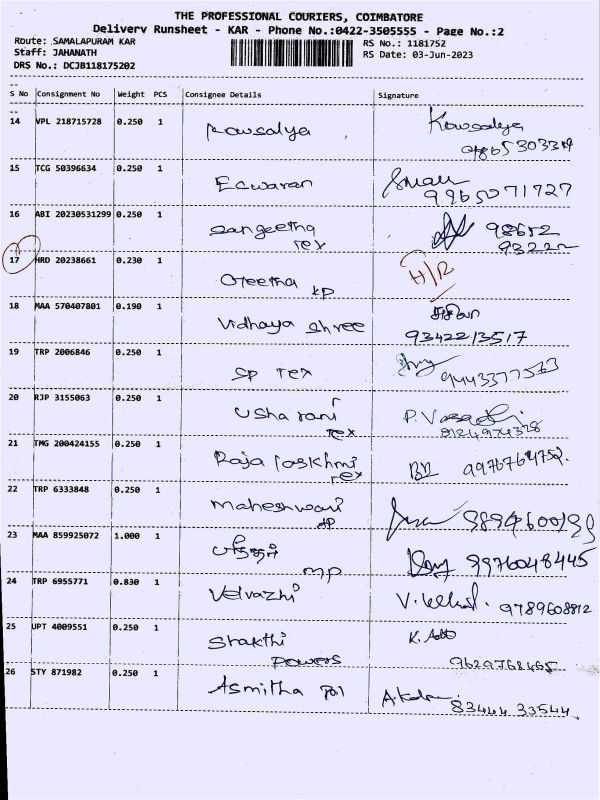 THE PROFESSIONAL COURIERS, COIMBATORE
Delivery Runsheet - KAR - Phone No.:0422-3505555 - Page No.:2
Route: SAMALAPURAM KAR
RS No.: 1181752
Staff: JAHANATH
RS Date: 03-Jun-2023
DRS No.: DCJB118175202
S No Consignment No Weight PCS Consignee Details Signature
14 VPL 218715728 0.250 1 Kowsalya Kowsalya
15 TCG 50396634 0.250 1 Eswaran
9965071727
16 ABI 20230531299 0.250 1 Sangeetha 98652
Tex 93222
17 HRD 20238661 0.230 1 Geetha KP H/R
18 MAA 570407801 0.190 1 Vidhaya Shree
9342213517
19 TRP 2006846 0.250 1 SP Tex
9443377563
20 RJP 3155063 0.250 1 Usha rani
Tex 8124974378
21 TMG 200424155 0.250 1 Raja laskhmi
Tex
22 TRP 6333848 0.250 1 Maheshwari
23 MAA 859925072 1.000 1
MP 9976048445
24 TRP 6955771 0.830 1 Velvazhi 9789608812
25 UPT 4009551 0.250 1 Shakthi
Powers 9629768495
26 STY 871982 0.250 1 Asmitha
83444 33544